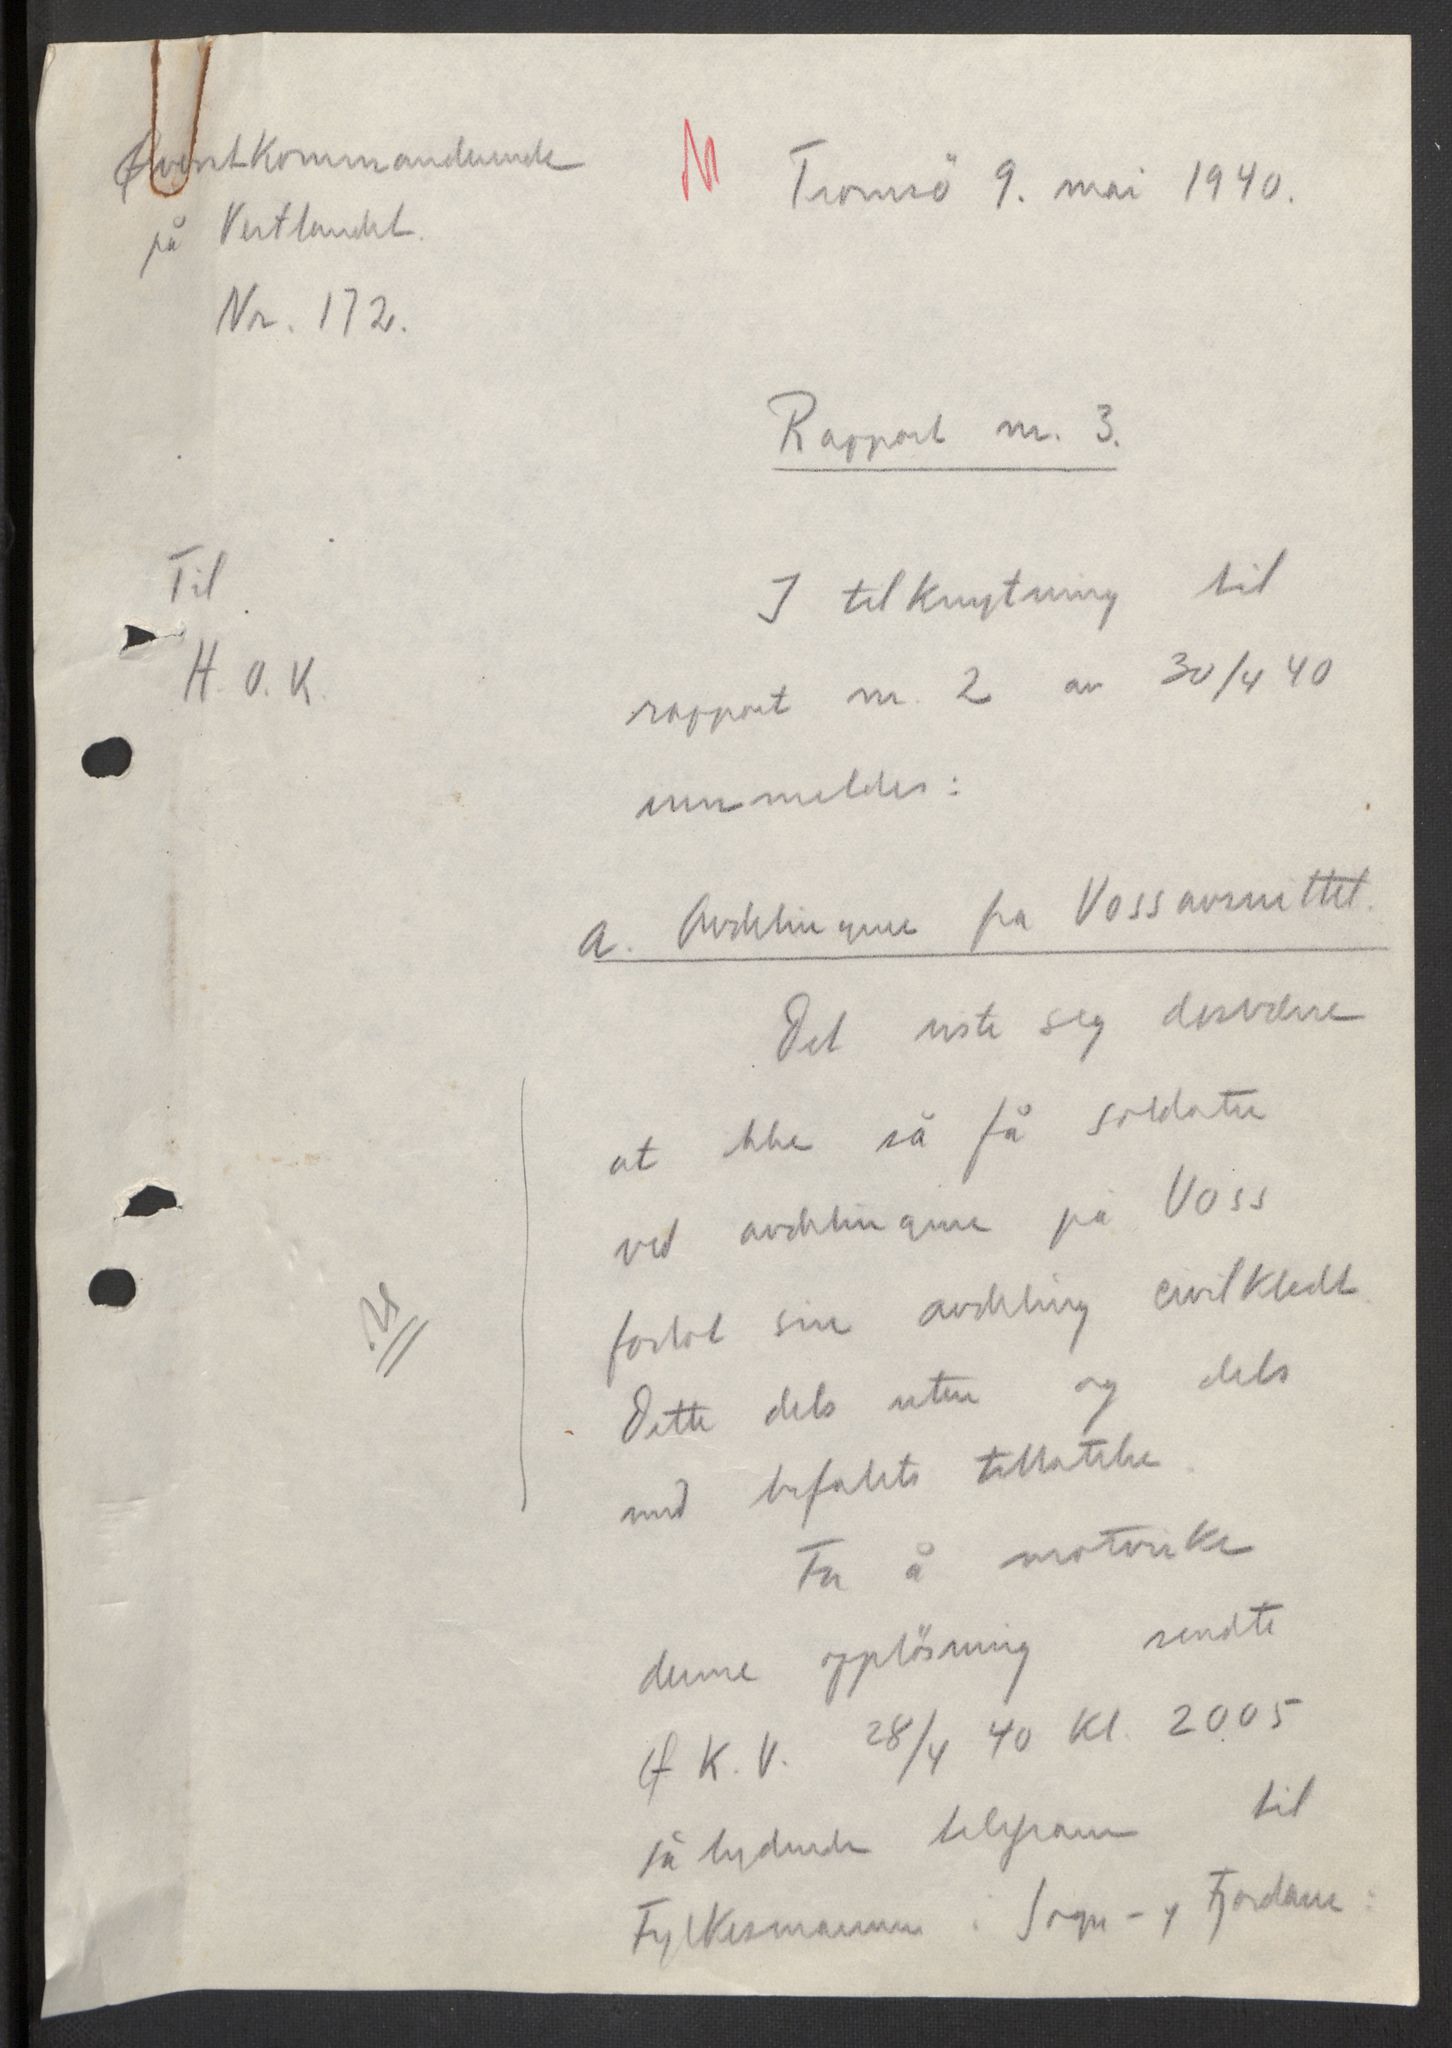 Øverstkommanderende
på Vestlandet.
Nr. 172.
Tromsö 9. mai 1940.
Rapport nr. 3.
Til
H.O.K.
I tilknytning til
rapport nr. 2 av 30/4 40
innmeldes:
a. Avdelingene på Vossavsnittet.
Det viste seg dessverre
at ikke så få soldater
ved avdelingene på Voss
forlot sin avdeling civilkledt.
Dette dels uten og dels
med befalets tillatelse.
For å motvirke
denne opplösning sendte
Ø K. V. 28/4 40 kl. 2005
så lydende telegram til
Fylkesmannen i Sogn- og Fjordane: